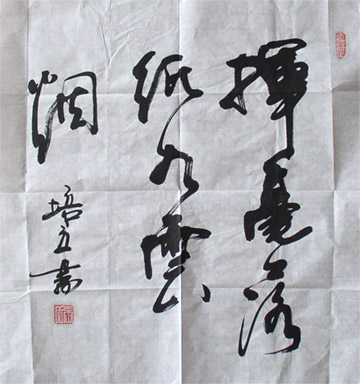 揮毫落
紙如雲
烟
培書